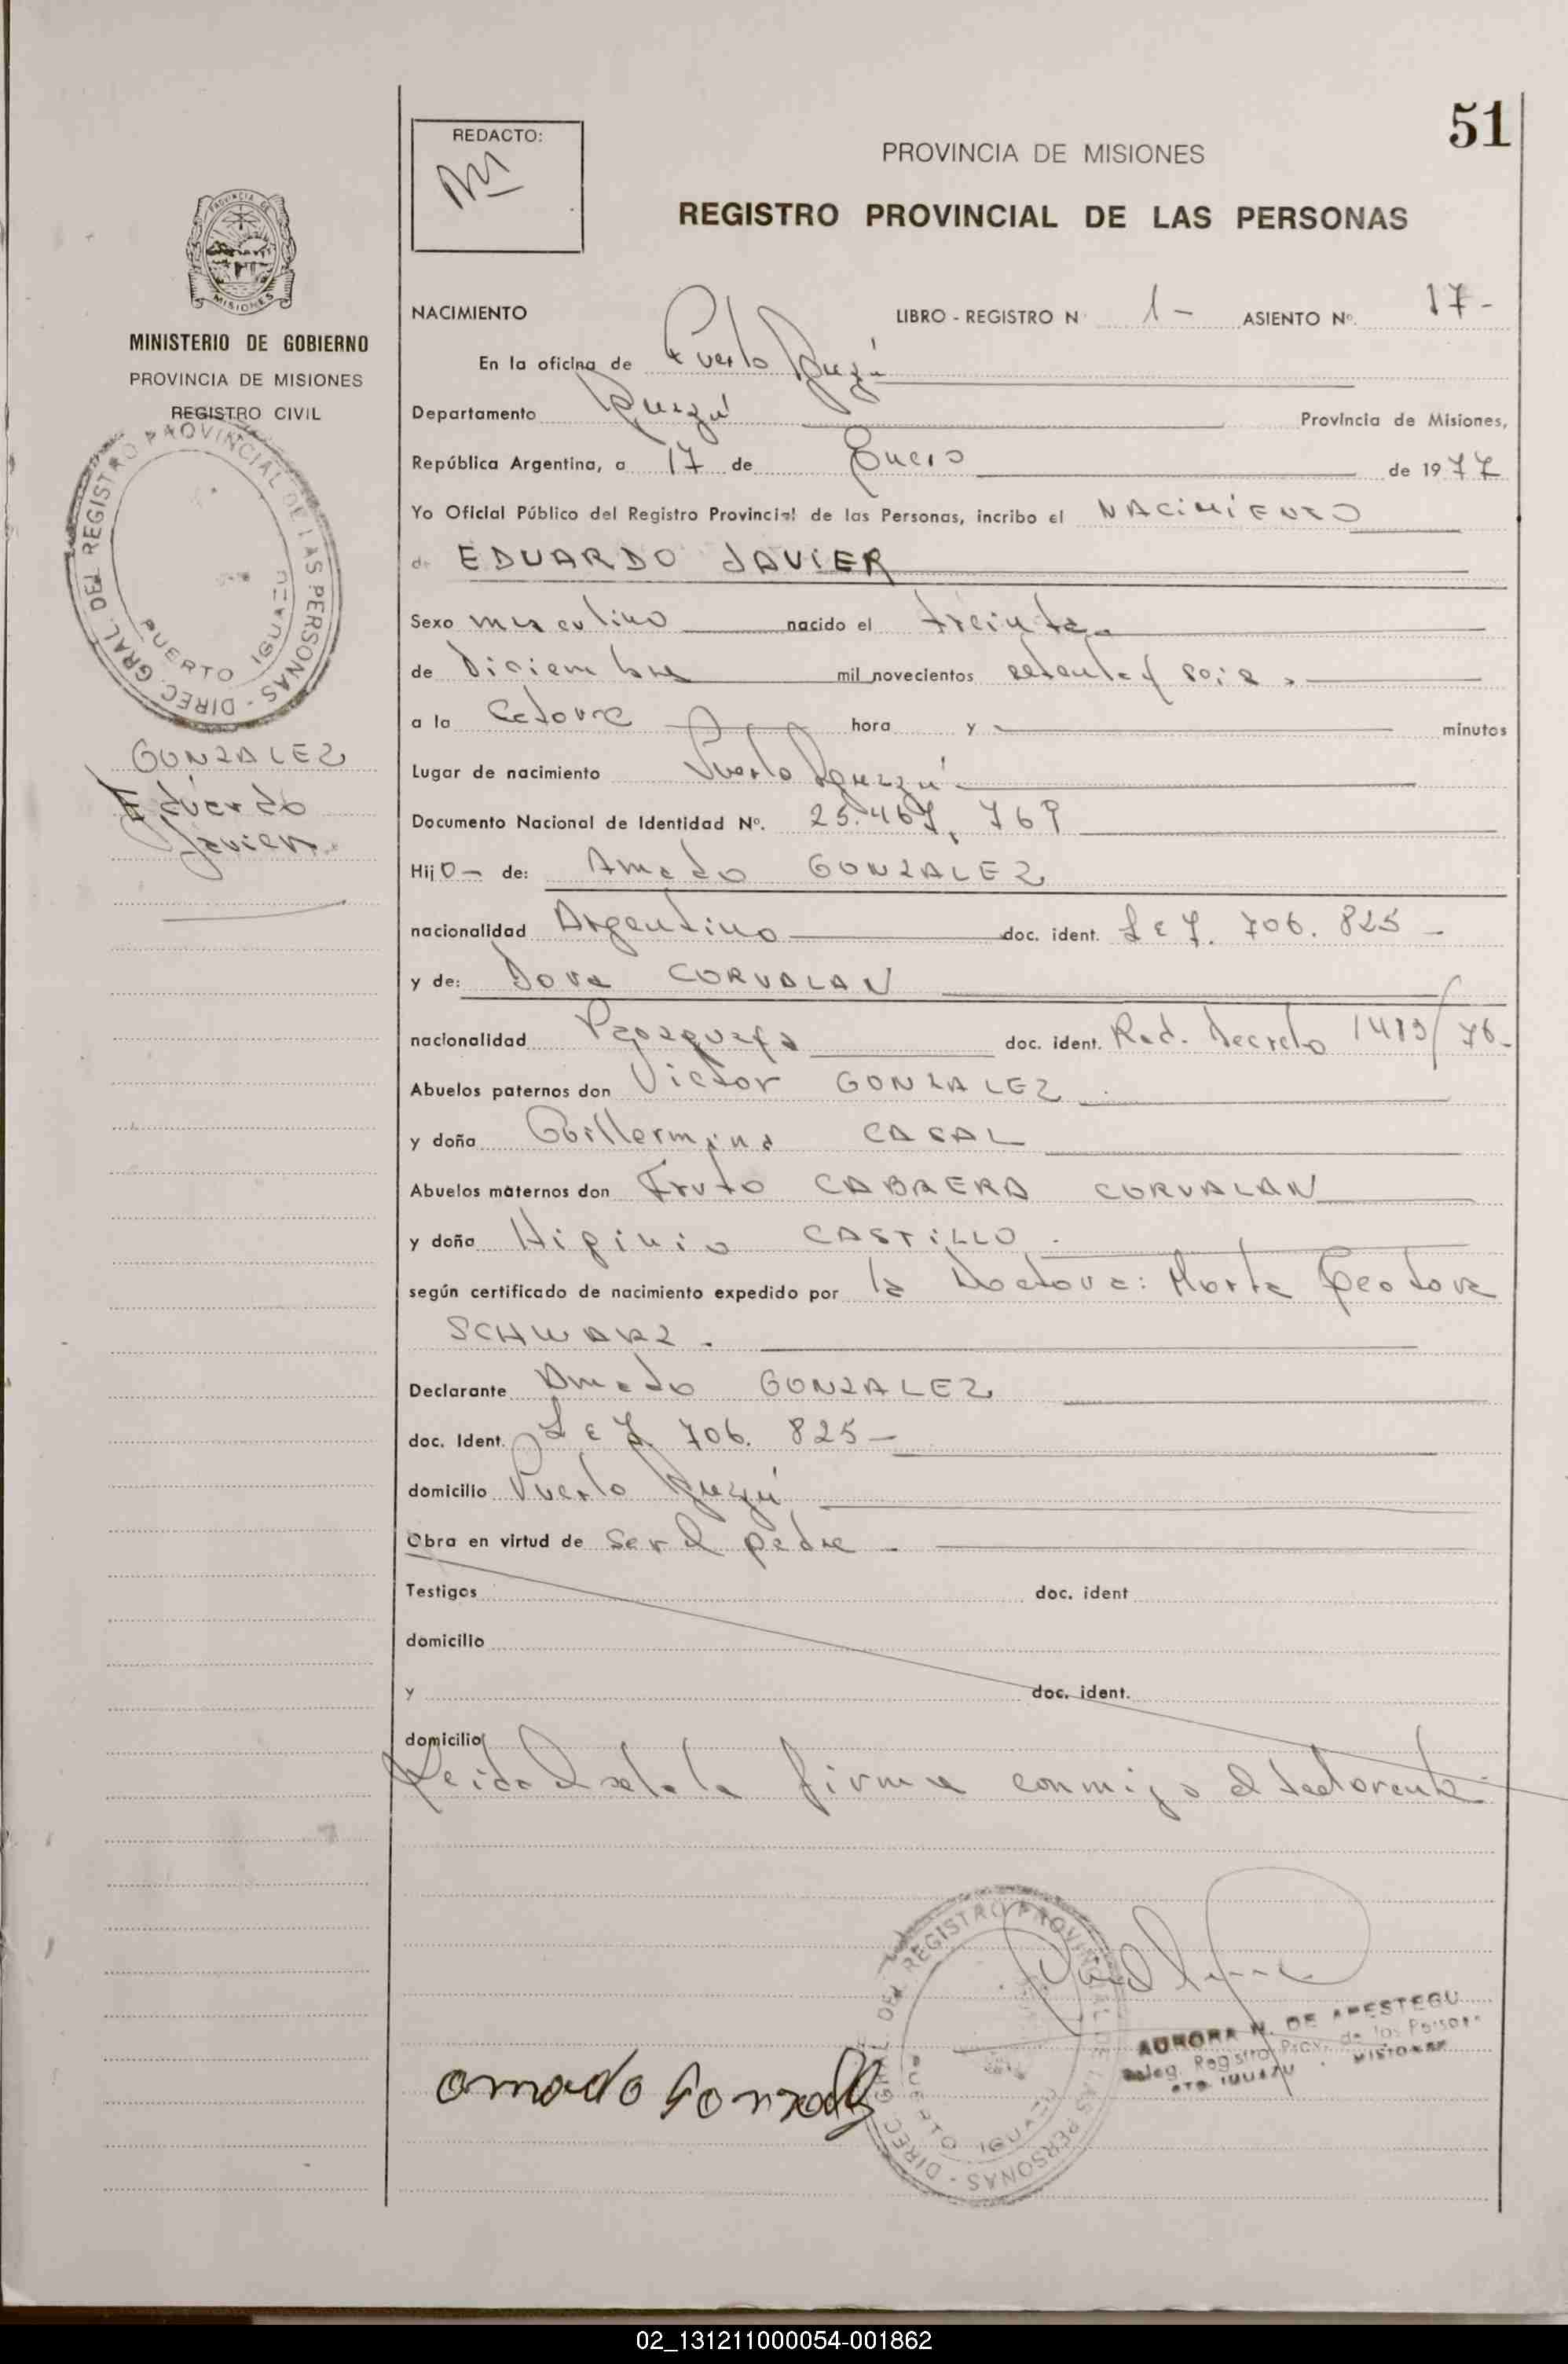 51
REDACTO:
PROVINCIA DE MISIONES
REGISTRO PROVINCIAL DE LAS PERSONAS
PROVINCIA DE
MISIONES
MINISTERIO DE GOBIERNO
PROVINCIA DE MISIONES
REGISTRO CIVIL
DIREC. GRAL. DEL REGISTRO PROVINCIAL DE LAS PERSONAS -
PUERTO IGUAZU
GONZALEZ
Eduardo
Javier
NACIMIENTO LIBRO - REGISTRO N 1- ASIENTO Nº. 17-
En la oficina de Puerto Iguazú
Departamento Iguazú Provincia de Misiones,
República Argentina, a 17 de Enero de 1977
Yo Oficial Público del Registro Provincial de las Personas, incribo el NACIMIENTO
de EDUARDO JAVIER
Sexo masculino nacido el treinta
de Diciembre mil novecientos setenta y seis
a la catorce hora y minutos
Lugar de nacimiento Puerto Iguazú
Documento Nacional de Identidad Nº. 25.467.769
Hijo- de: Amado GONZALEZ
nacionalidad Argentino doc. ident. L E 7.706.825 -
y de: Dora CORVALAN
nacionalidad Paraguaya doc. ident. Rad. Decreto /76-
Abuelos paternos don Victor GONZALEZ
y doña Guillermina CASAL
Abuelos maternos don Fruto CABRERA CORVALAN
y doña Higinia CASTILLO
según certificado de nacimiento expedido por la Doctora: Marta
SCHWARZ.
Declarante Amado GONZALEZ
doc. Ident. L E 7.706.825-
domicilio Puerto Iguazú
Obra en virtud de ser el padre -
Testigos doc. ident
domicilio
y doc. ident.
domicilio
Leida el acta la firma conmigo el declarante
DIREC. GRAL. DEL REGISTRO PROVINCIAL DE LAS PERSONAS -
PUERTO IGUAZU
AURORA N. DE APESTEGU
Deleg. Registro Prov. de las Person
PTO. IGUAZU - MISIONES
amado Gonzalez
02_131211000054-001862